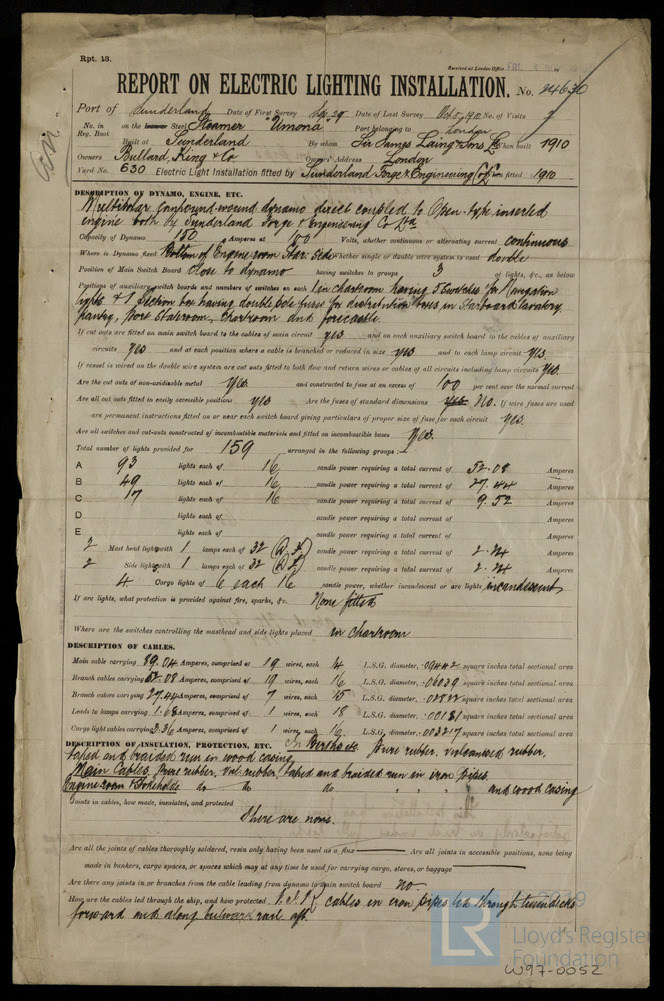 Rpt. 13.
Received at London Office FRI.
REPORT ON ELECTRIC LIGHTING INSTALLATION. No. 24630
Port of Sunderland Date of First Survey Sep 29 Date of Last Survey Oct 5 1910 No. of Visits 7
No. in Reg. Book on the Iron or Steel Steamer "Umona" Port belonging to London
Built at Sunderland By whom Sir James Laing & Sons Ld When built 1910
Owners Bullard, King & Co. Owners' Address London
Yard No. 630 Electric Light Installation fitted by Sunderland Forge & Engineering Co Ld When fitted 1910
DESCRIPTION OF DYNAMO, ENGINE, ETC.
Multipolar compound-wound dynamo direct coupled to Open-type inverted
engine both by Sunderland Forge & Engineering Co Ltd
Capacity of Dynamo 150 Amperes at 100 Volts, whether continuous or alternating current continuous
Where is Dynamo fixed Bottom of Engine room Star. Side Whether single or double wire system is used double
Position of Main Switch Board close to dynamo having switches to groups 3 of lights, &c., as below
Positions of auxiliary switch boards and numbers of switches on each 1 in chartroom having 5 switches for Navigation
lights & 1 Section box having double pole fuses for distribution boxes in Starboard lavatory,
pantry, Port Stateroom, Chartroom and forecastle.
If cut outs are fitted on main switch board to the cables of main circuit yes and on each auxiliary switch board to the cables of auxiliary
circuits Yes and at each position where a cable is branched or reduced in size yes and to each lamp circuit yes.
If vessel is wired on the double wire system are cut outs fitted to both flow and return wires or cables of all circuits including lamp circuits Yes.
Are the cut outs of non-oxidizable metal Yes. and constructed to fuse at an excess of 100 per cent over the normal current
Are all cut outs fitted in easily accessible positions yes Are the fuses of standard dimensions yes No. If wire fuses are used
are permanent instructions fitted on or near each switch board giving particulars of proper size of fuse for each circuit Yes.
Are all switches and cut-outs constructed of incombustible materials and fitted on incombustible bases Yes.
Total number of lights provided for 159 arranged in the following groups:—
A 93 lights each of 16 candle power requiring a total current of 52.08 Amperes
B 49 lights each of 16 candle power requiring a total current of 27.44 Amperes
C 17 lights each of 16 candle power requiring a total current of 9.52 Amperes
D lights each of candle power requiring a total current of Amperes
E lights each of candle power requiring a total current of Amperes
2 Mast head light with 1 lamps each of 32 candle power requiring a total current of 2.24 Amperes
2 Side light with 1 lamps each of 32 candle power requiring a total current of 2.24 Amperes
4 Cargo lights of 6 each 16 candle power, whether incandescent or arc lights incandescent
If arc lights, what protection is provided against fire, sparks, &c. None fitted
Where are the switches controlling the masthead and side lights placed in chartroom
DESCRIPTION OF CABLES.
Main cable carrying 89.04 Amperes, comprised of 19 wires, each 14 L.S.G. diameter, .09442 square inches total sectional area
Branch cables carrying 52.08 Amperes, comprised of 19 wires, each 16 L.S.G. diameter, .06039 square inches total sectional area
Branch cables carrying 27.44 Amperes, comprised of 7 wires, each 15 L.S.G. diameter, .02822 square inches total sectional area
Leads to lamps carrying 1.68 Amperes, comprised of 1 wires, each 18 L.S.G. diameter, .00181 square inches total sectional area
Cargo light cables carrying 3.36 Amperes, comprised of 1 wires, each 16 L.S.G. diameter, .003217 square inches total sectional area
DESCRIPTION OF INSULATION, PROTECTION, ETC. In Berths etc Pure rubber, vulcanised rubber,
taped and braided run in wood casing
Main Cables. Pure rubber, vul. rubber, taped and braided run in iron pipes.
Engine room & Stokeholds do do do " " " and wood casing
Joints in cables, how made, insulated, and protected
There are none.
Are all the joints of cables thoroughly soldered, resin only having been used as a flux Are all joints in accessible positions, none being
made in bunkers, cargo spaces, or spaces which may at any time be used for carrying cargo, stores, or baggage
Are there any joints in or branches from the cable leading from dynamo to main switch board no
How are the cables led through the ship, and how protected cables in iron pipes led through tweendecks
forward and along bulwark rail aft.
LR
Lloyd's Register
Foundation
W97-0052